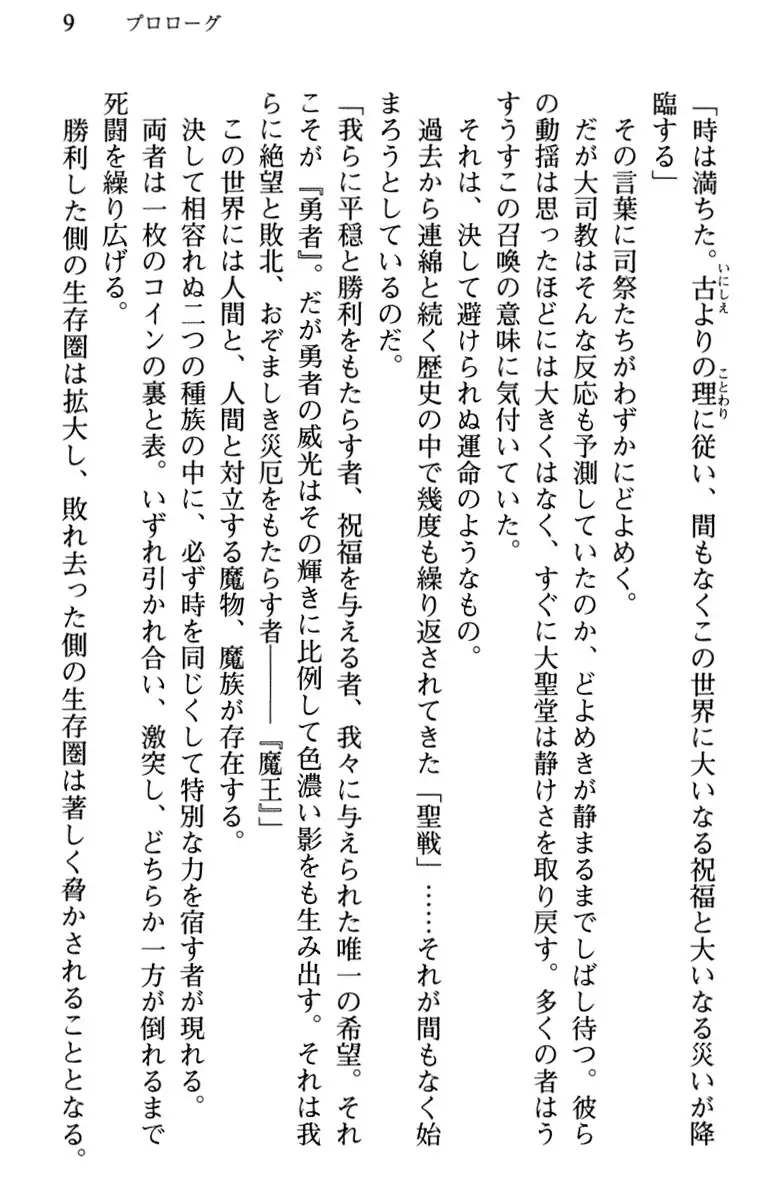 9 プロローグ
「時は満ちた。古よりの理に従い、間もなくこの世界に大いなる祝福と大いなる災いが降
いにしえ
ことわり
臨する」
その言葉に司祭たちがわずかにどよめく。
だが大司教はそんな反応も予測していたのか、どよめきが静まるまでしばし待つ。彼ら
の動揺は思ったほどには大きくはなく、すぐに大聖堂は静けさを取り戻す。多くの者はう
すうすこの召喚の意味に気付いていた。
それは、決して避けられぬ運命のようなもの。
過去から連綿と続く歴史の中で幾度も繰り返されてきた「聖戦」……それが間もなく始
まろうとしているのだ。
「我らに平穏と勝利をもたらす者、祝福を与える者、我々に与えられた唯一の希望。それ
こそが『勇者』。だが勇者の威光はその輝きに比例して色濃い影をも生み出す。それは我
らに絶望と敗北、おぞましき災厄をもたらす者――『魔王』」
この世界には人間と、人間と対立する魔物、魔族が存在する。
決して相容れぬ二つの種族の中に、必ず時を同じくして特別な力を宿す者が現れる。
両者は一枚のコインの裏と表。いずれ引かれ合い、激突し、どちらか一方が倒れるまで
死闘を繰り広げる。
勝利した側の生存圏は拡大し、敗れ去った側の生存圏は著しく脅かされることとなる。